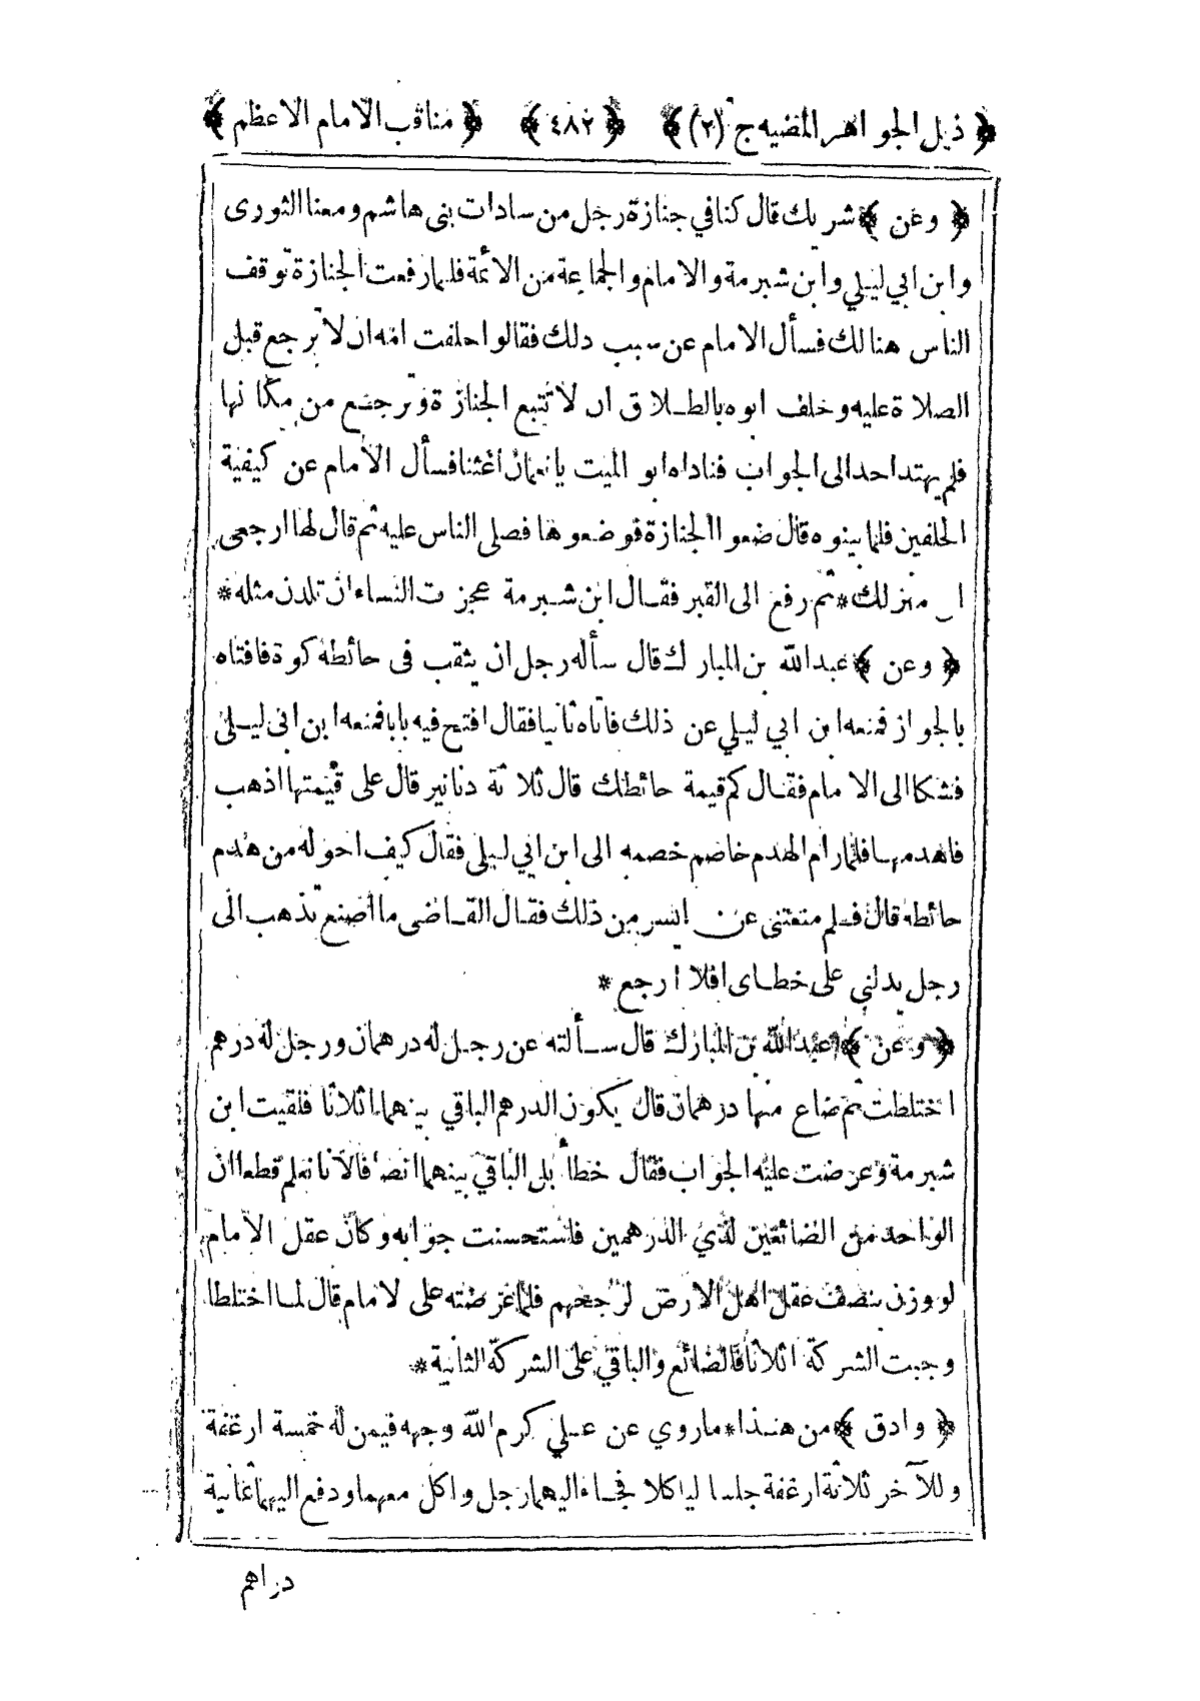 ﴿ ذيل الجواهر المضيه ج (٢)﴾ ﴿ ٤٨٢ ﴾ ﴿ مناقب الامام الاعظم ﴾
﴿ وعن ﴾ شريك قال كنا في جنازة رجل من سادات بنى هاشم ومعنا الثورى
وابن ابي ليلي وابن شبرمة والامام والجماعة من الائمة فلما رفعت الجنازة توقف
الناس هنالك فسأل الامام عن سبب ذلك فقالوا حلفت امه ان لا ترجع قبل
الصلاة عليه وحلف ابوه بالطلاق ان لا تتبع الجنازة وترجع من مكانها
فلم يهتد احد الى الجواب فناداه ابو الميت يا نعمان اغثنا فسأل الامام عن كيفية
الحلفين فلما بينوه قال ضعوا الجنازة فوضعوها فصلى الناس عليه ثم قال لها ارجعى
الى منزلك * ثم رفع الى القبر فقال ابن شبرمة عجزت النساء ان تلدن مثله *
﴿ وعن ﴾ عبد الله بن المبارك قال سأله رجل ان يثقب فى حائطه كوة فافتاه
بالجواز فمنعه ابن ابي ليلي عن ذلك فاتاه ثانيا فقال افتح فيه بابا فمنعه ابن ابى ليلى
فشكا الى الامام فقال كم قيمة حائطك قال ثلاثة دنانير قال على قيمتها اذهب
فاهدمها فلما رام الهدم خاصم خصمه الى ابن ابي ليلى فقال كيف احوله من هدم
حائطه قال فلم منعتنى عن ايسر من ذلك فقال القاضى ما اصنع تذهب الى
رجل يدلني على خطاى افلا ارجع *
﴿ وعن ﴾ عبد الله بن المبارك قال سألته عن رجل له درهمان ورجل له درهم
اختلطت ثم ضاع منها درهمان قال يكون الدرهم الباقي بينهما اثلاثا فلقيت ابن
شبرمة وعرضت عليه الجواب فقال خطأ بل الباقي بينهما انصافا لانا نعلم قطعا ان
الواحد من الضائعين لذي الدرهمين فاستحسنت جوابه وكان عقل الامام
لو وزن بنصف عقل اهل الارض لرجحهم فلما عرضته على لامام قال لما اختلطا
وجبت الشركة اثلاثا فالضائع والباقي على الشركة الثانية *
﴿ وادق ﴾ من هذا * ماروي عن علي كرم الله وجهه فيمن له خمسة ارغفة
وللآخر ثلاثة ارغفة جلسا ليا كلا فجاء اليهما رجل واكل معهما ودفع اليهما ثمانية
دراهم